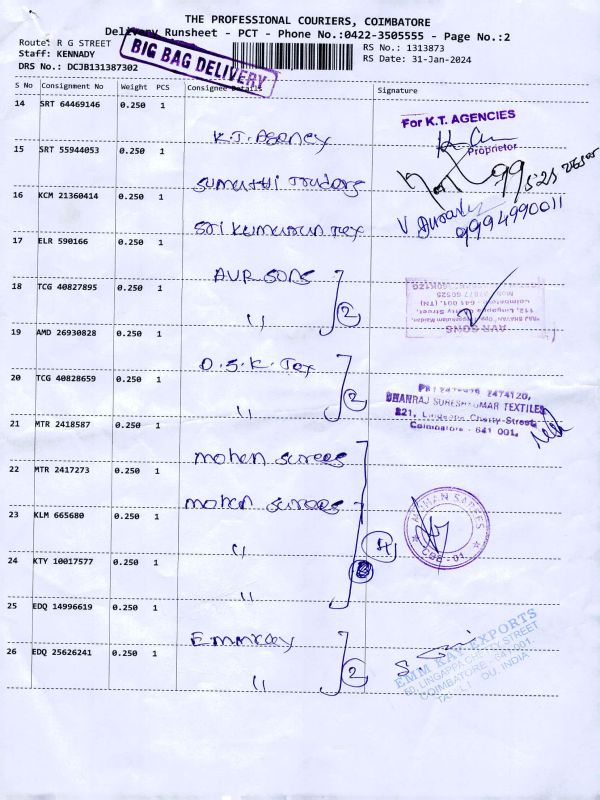 THE PROFESSIONAL COURIERS, COIMBATORE
Delivery Runsheet - PCT - Phone No.:0422-3505555 - Page No.:2
Route: R G STREET
Staff: KENNADY
DRS No.: DCJB131387302
BIG BAG DELIVERY
RS No.: 1313873
RS Date: 31-Jan-2024
S No Consignment No Weight PCS Consignee Details Signature
14 SRT 64469146 0.250 1
K.T. Agency
For K.T. AGENCIES
Proprietor
15 SRT 55944053 0.250 1
Sumathi Traders
16 KCM 21360414 0.250 1
Sri Kumaran Tex
9994990011
17 ELR 590166 0.250 1
AVR SONS
18 TCG 40827895 0.250 1
〃 2
AVR SONS
112, Lingappa Chetty Street,
Coimbatore 641 001. (TN)
19 AMD 26930828 0.250 1
D.S.K. Tex
20 TCG 40828659 0.250 1
〃 2
2474120,
DHANRAJ SURESHKUMAR TEXTILES
221, Lingappa Chetty Street,
Coimbatore - 641 001.
21 MTR 2418587 0.250 1
mohan sarees
22 MTR 2417273 0.250 1
mohan sarees
23 KLM 665680 0.250 1
〃 4
MOHAN SAREES
CBE - 01
24 KTY 10017577 0.250 1
〃
25 EDQ 14996619 0.250 1
Emmkay
26 EDQ 25626241 0.250 1
〃 2
EMM KAY EXPORTS
LINGAPPA CHETTY STREET
COIMBATORE - 641 001
INDIA